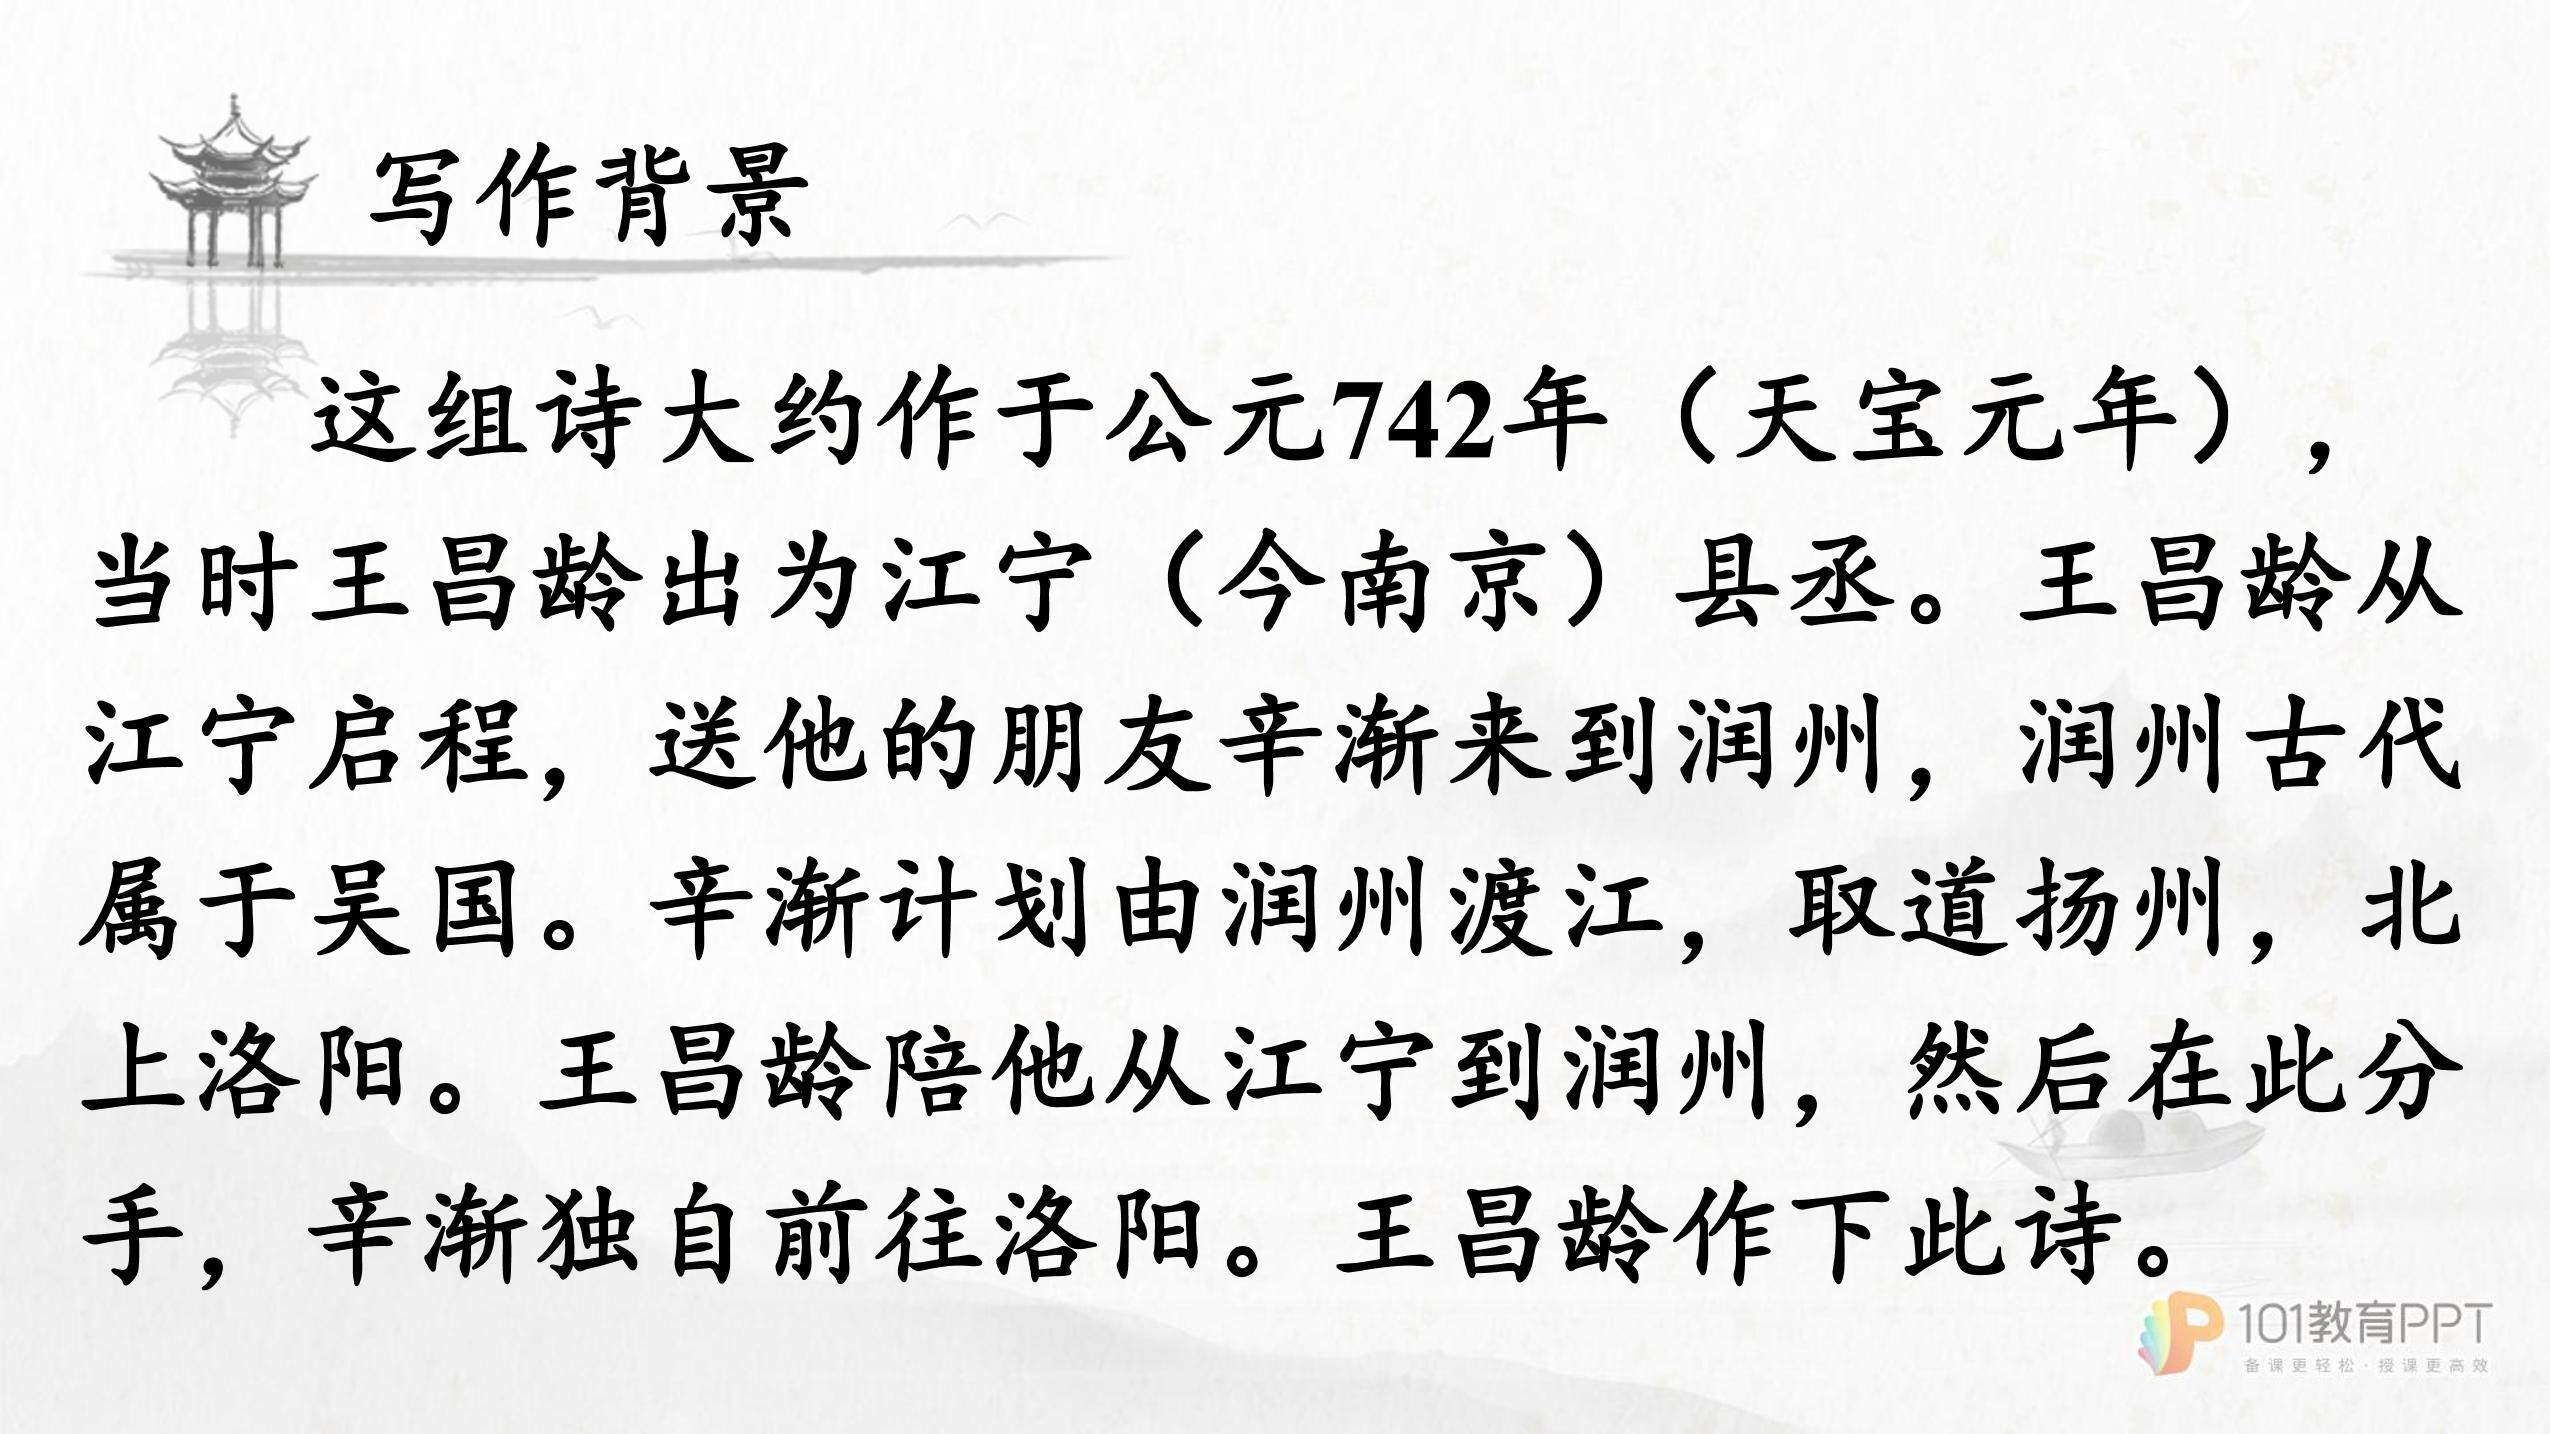 写作背景
这组诗大约作于公元742年（天宝元年），
当时王昌龄出为江宁（今南京）县丞。王昌龄从
江宁启程，送他的朋友辛渐来到润州，润州古代
属于吴国。辛渐计划由润州渡江，取道扬州，北
上洛阳。王昌龄陪他从江宁到润州，然后在此分
手，辛渐独自前往洛阳。王昌龄作下此诗。
101教育PPT
备课更轻松·授课更高效